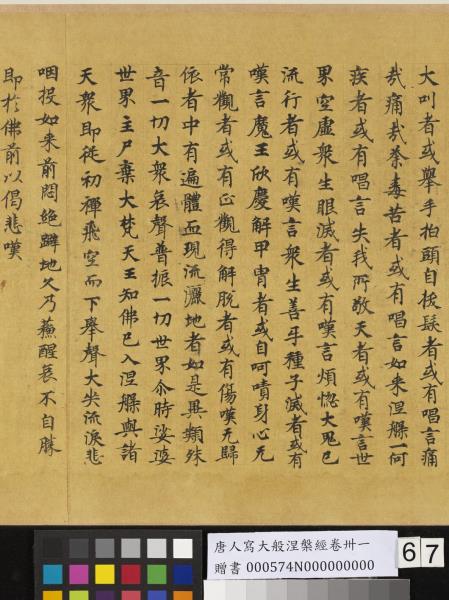 大叫者或有舉手拍頭自拔髮者或有唱言痛
哉痛哉荼毒苦者或有唱言如来涅槃一何
疾者或有唱言失我所敬天者或有嘆言世
果空虚衆生眼滅者或有嘆言煩惱大鬼已
流行者或有嘆言衆生善牙種子滅者或有
嘆言魔王欣慶解甲胄者或自呵嘖身心无
常觀者或有正觀得解脱者或有傷嘆无歸
依者中有遍體血現流灑地者如是異類殊
音一切大衆哀聲普振一切世界尒時娑婆
世界主尸棄大梵天王知佛已入涅槃與諸
天衆即従初禪飛空而下舉聲大哭流淚悲
咽投如来前悶絶躃地久乃蘓醒哀不自勝
即於佛前以偈悲嘆
唐人寫大般涅槃經卷卅一
贈書 000574N000000000
6 7